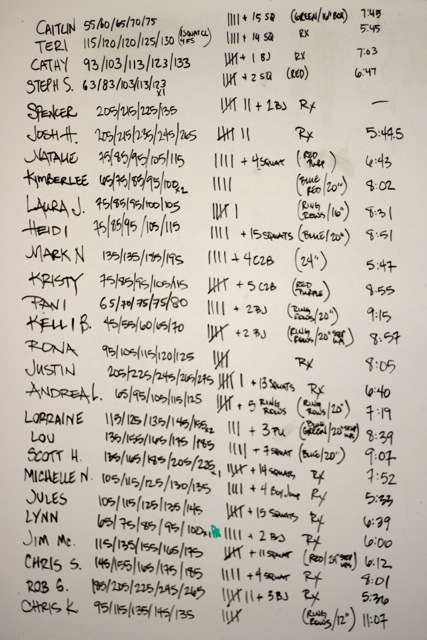 CAITLIN 55/60/65/70/75 |||| + 15 SQ (GREEN/16" BOX) 7:45
TERI 115/120/120/125/130 |||| + 14 SQ RX 5:45
CATHY 93/103/113/123/133 + 1 BJ RX 7:03
STEPH S. 63/83/103/113/123 x1 + 2 SQ (RED) 6:47
SPENCER 205/215/225/135 |||| || + 2BJ Rx —
JOSH H. 205/215/235/245/265 |||| || Rx 5:445
NATALIE 75/85/95/105/115 |||| + 4 SQUAT (RED PURP) 6:43
KIMBERLEE 65/75/85/95/100x2 |||| (BLUE RED/20") 8:02
LAURA J. 75/85/95/100/105 |||| | (RING ROWS/16") 8:31
HEIDI 75/85/95/105/115 |||| + 15 SQUATS (BLUE/20") 8:51
MARK N 135/135/185/195 |||| + 4 C2B (24") 5:47
KRISTY 75/85/95/105/115 + 5 C2B (RED PURPLE) 8:55
PAVI 65/70/75/75/80 |||| + 2BJ (RING ROWS/20") 9:15
KELLI B. 45/55/60/65/70 + 2 BJ (RING ROWS/20" STEP UPS) 8:57
RONA 95/105/115/120/125 Rx 8:05
JUSTIN 205/225/245/265/275 | + 13 SQUATS Rx 6:40
ANDREA L. 65/95/105/115/125 + 5 RING ROWS (RING ROWS/20") 7:19
LORRAINE 115/125/135/145/155x2 ||| + 3 PU (GREEN/20" STEP UPS) 8:39
LOU 135/155/165/175/185 |||| + 7 SQUAT (BLUE/20") 9:07
SCOTT H. 135/165/185/205/225x1 + 14 SQUATS Rx 7:52
MICHELLE N. 105/115/125/130/135 |||| + 4 BOX JUMP Rx 5:33
JULES 105/115/125/135/145 + 15 SQUATS Rx 6:39
LYNN 65/75/85/95/100x1 PR |||| + 2 BJ Rx 6:00
JIM MC. 115/135/155/165/175 + 11 SQUAT (RED/24" STEP UPS) 6:12
CHRIS S. 145/155/165/175/185 |||| + 4 SQUAT Rx 8:01
ROB G. 185/205/225/245/265 || + 3 BJ Rx 5:36
CHRIS K. 95/115/135/145/135 (RING ROWS/12") 11:07